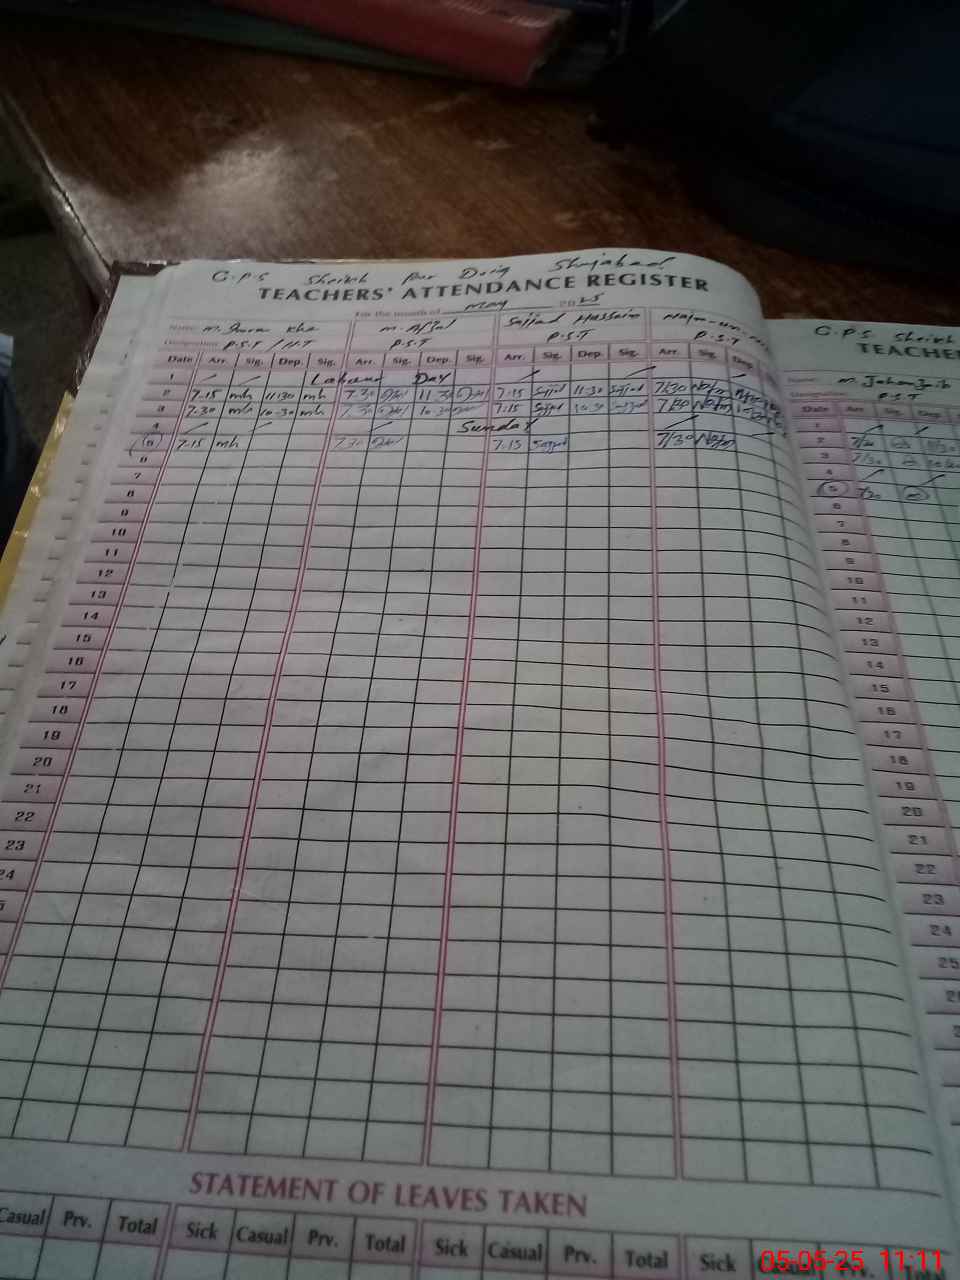 G.P.S Sheikh Pur Shujabad
TEACHERS' ATTENDANCE REGISTER
For the month of May 2025
Name: M. M. Afzal Sajjad Hussain Najm-un-
Designation P.S.T / H.T P.S.T P.S.T P.S.T
Date Arr. Sig. Dep. Sig. Arr. Sig. Dep. Sig. Arr. Sig. Dep. Sig. Arr. Sig. Dep. Sig.
1 Labour Day
2 7-15 mh 11:30 mh 7.30 11.30 7-15 Sajjad 11-30 Sajjad 7/30 Najm
3 7.30 mh 10-30 mh 7.30 10-30 7:15 Sajjad 10-30 Sajjad 7/30 Najm
4 Sunday
5 7.15 mh 7.30 7.15 Sajjad 7/30 Najm
6
7
8
9
10
11
12
13
14
15
16
17
18
19
20
21
22
23
24
STATEMENT OF LEAVES TAKEN
Casual Prv. Total Sick Casual Prv. Total Sick Casual Prv. Total Sick
G.P.S. Sheikh
TEACHE
Name: M. Jahanzaib
Designation P.S.T
Date Arr. Sig. Dep.
1
2 7/30
3 7/30
4
5 7/30
6
7
8
9
10
11
12
13
14
15
16
17
18
19
20
21
22
23
24
25
05-05-25 11:11